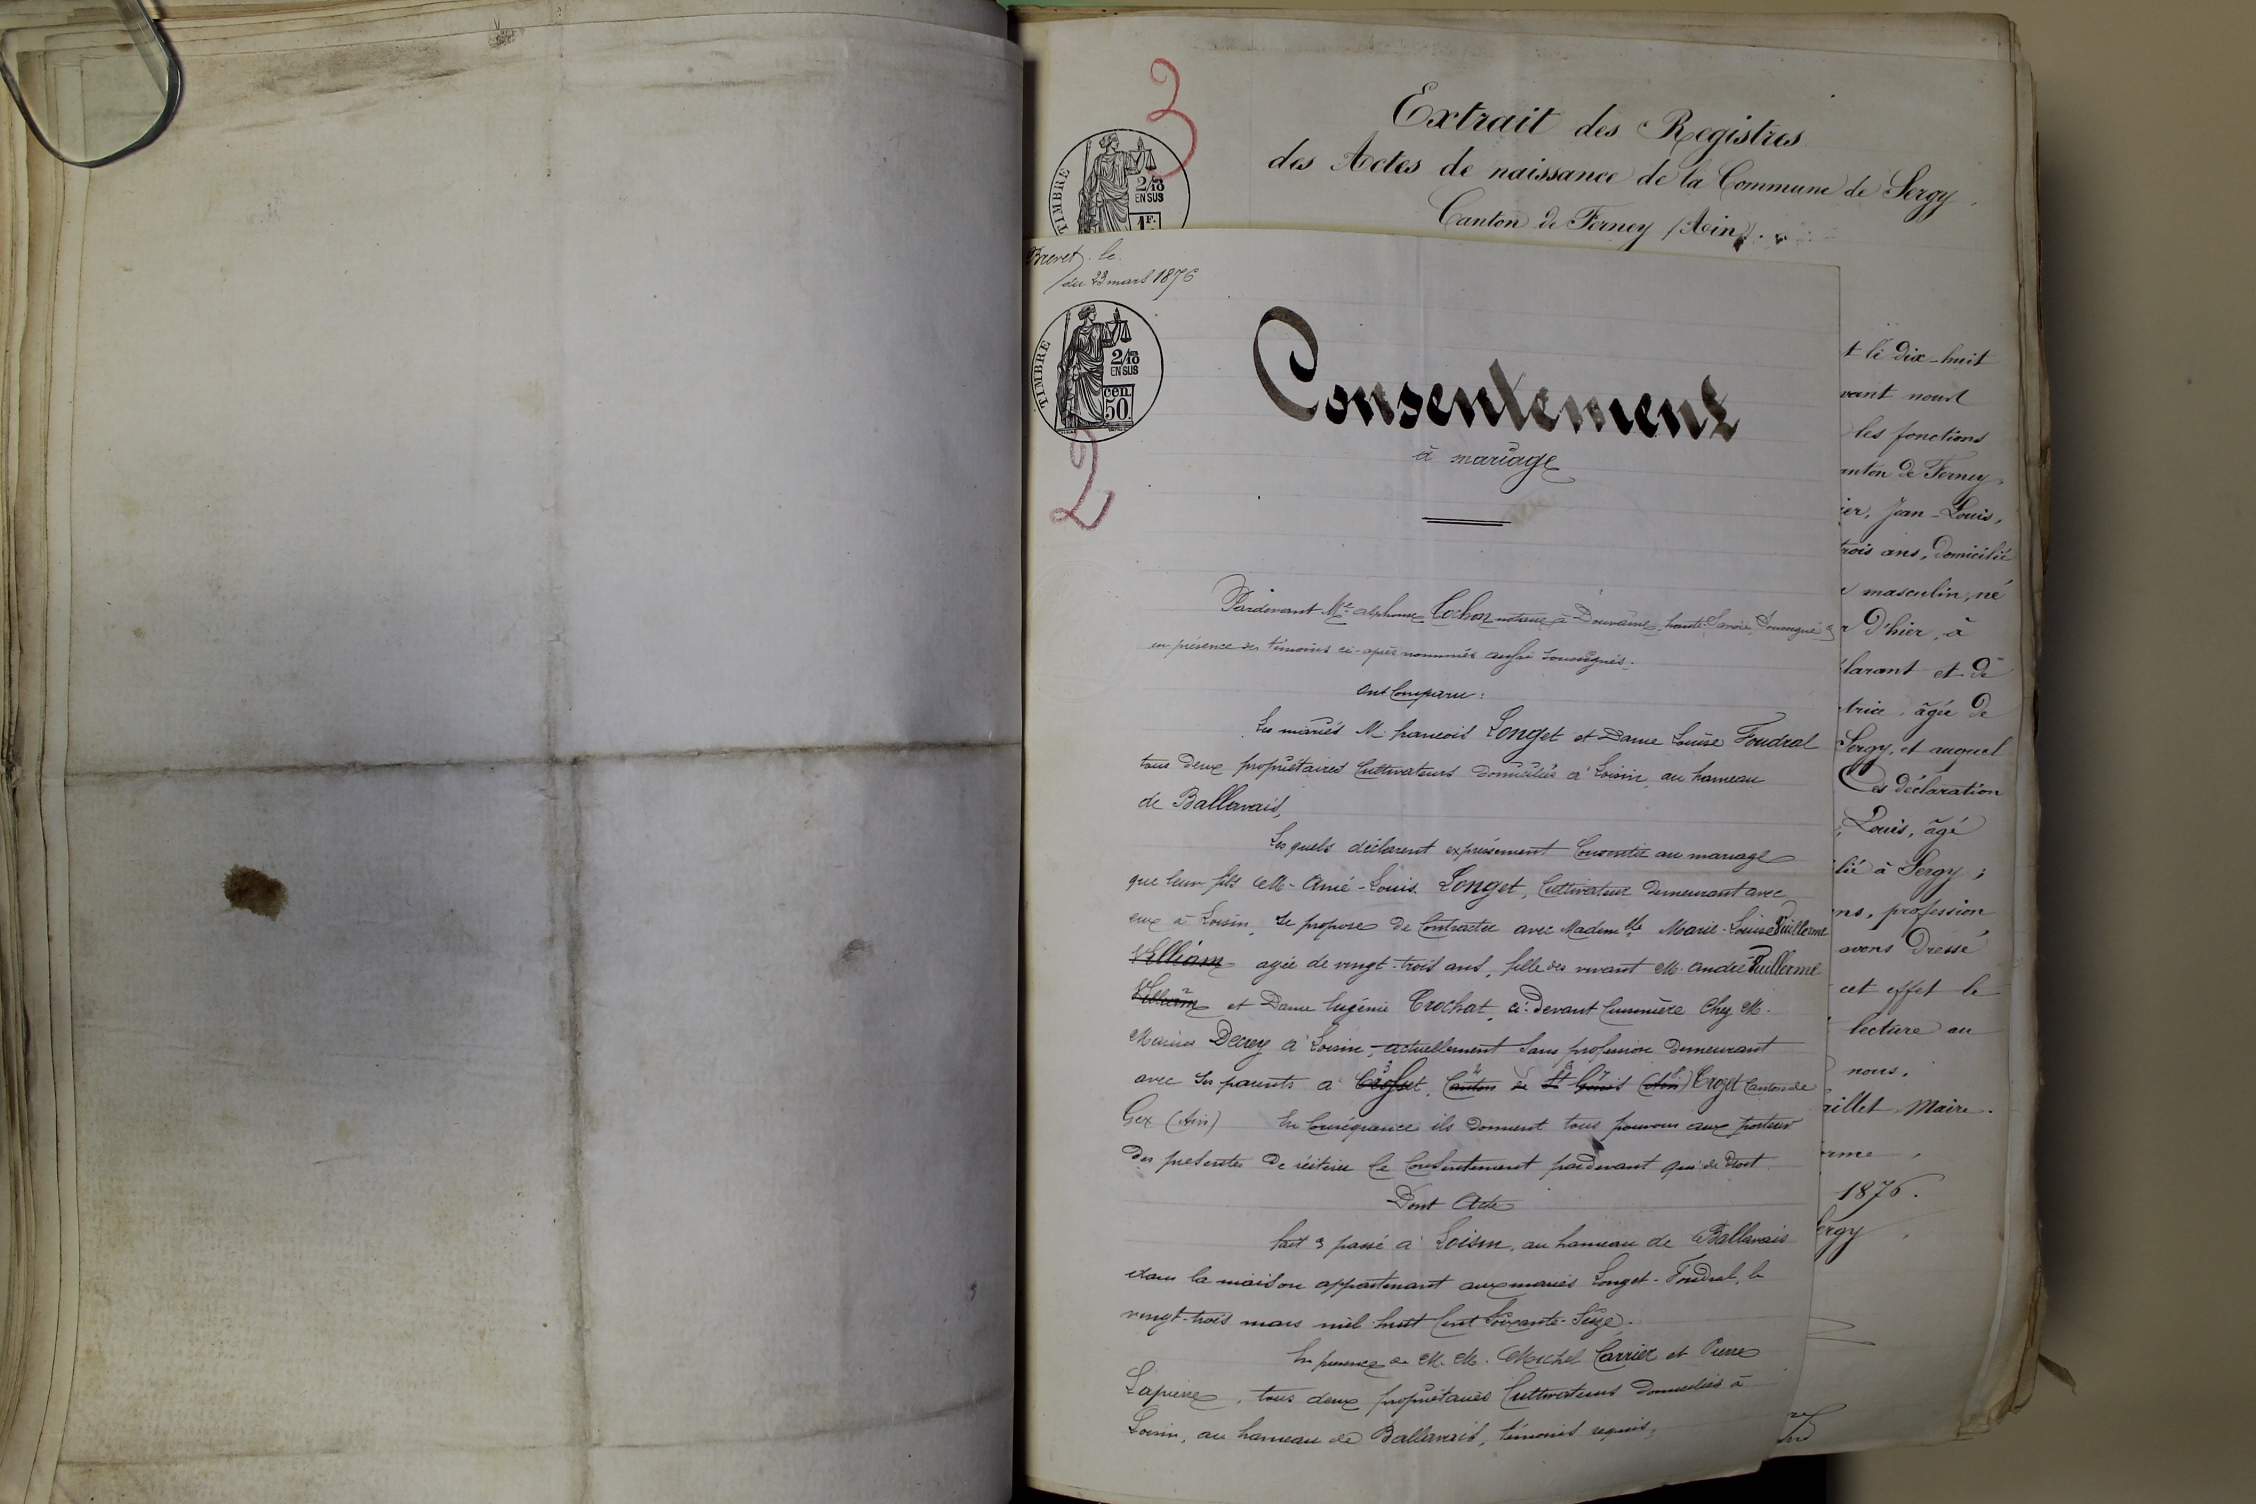 3
Extrait des Registres
des Actes de naissance de la Commune de Sergy
Canton de Ferney (Ain).
TIMBRE
2/10
EN SUS
1F.
Brevet. le
du 23 mars 1876
TIMBRE
2/10
EN SUS
cen.
50
2
Consentement
à mariage
Pardevant Me. Alphonse Cochon notaire à Douvaine, haute-Savoie, Soussigné &
en présence des témoins ci-après nommés aussi soussignés.
Ont Comparu:
Les mariés M. francois Longet et Dame Louise Foudral
tous deux propriétaires Cultivateurs domiciliés à Loisin, au hameau
de Ballavais,
Lesquels déclarent expressément Consentir au mariage
que leur fils M. Aimé-Louis Longet, Cultivateur demeurant avec
eux à Loisin, se propose de Contracter avec Mademlle Marie-Louise Vuillerme
agée de vingt-trois ans, fille des vivant M. andré Vuillerme
et Dame Eugénie Crochat, ci-devant chez M.
Decrey à Loisin, actuellement Sans profession demeurant
avec ses parents à Crozet, Canton de St Genis (Ain) Crozet Canton de
Gex (Ain) En Conséquence ils donnent tous pouvoirs aux porteurs
des presentes de réitérer le Consentement pardevant qui de Droit
Dont Acte
fait & passé à Loisin, au hameau de Ballavais
dans la maison appartenant aux mariés Longet-Foudral, le
vingt-trois mars mil huit Cent Soixante-Seize.
En presence de M. M. Michel Carrier et Pierre
Lapierre, tous deux propriétaires Cultivateurs domiciliés à
Loisin, au hameau de Ballavais, témoins requis,
t le dix-huit
vant nous
les fonctions
anton de Ferney,
ier, Jean-Louis,
trois ans, domicilié
masculin, né
r d'hier, à
larant et de
trice, âgée de
Sergy, et auquel
Ces déclaration
Louis, âgé
lié à Sergy;
ns, profession
avons dressé
cet effet le
lecture au
nous.
aillet, Maire.
orme
1876.
ergy